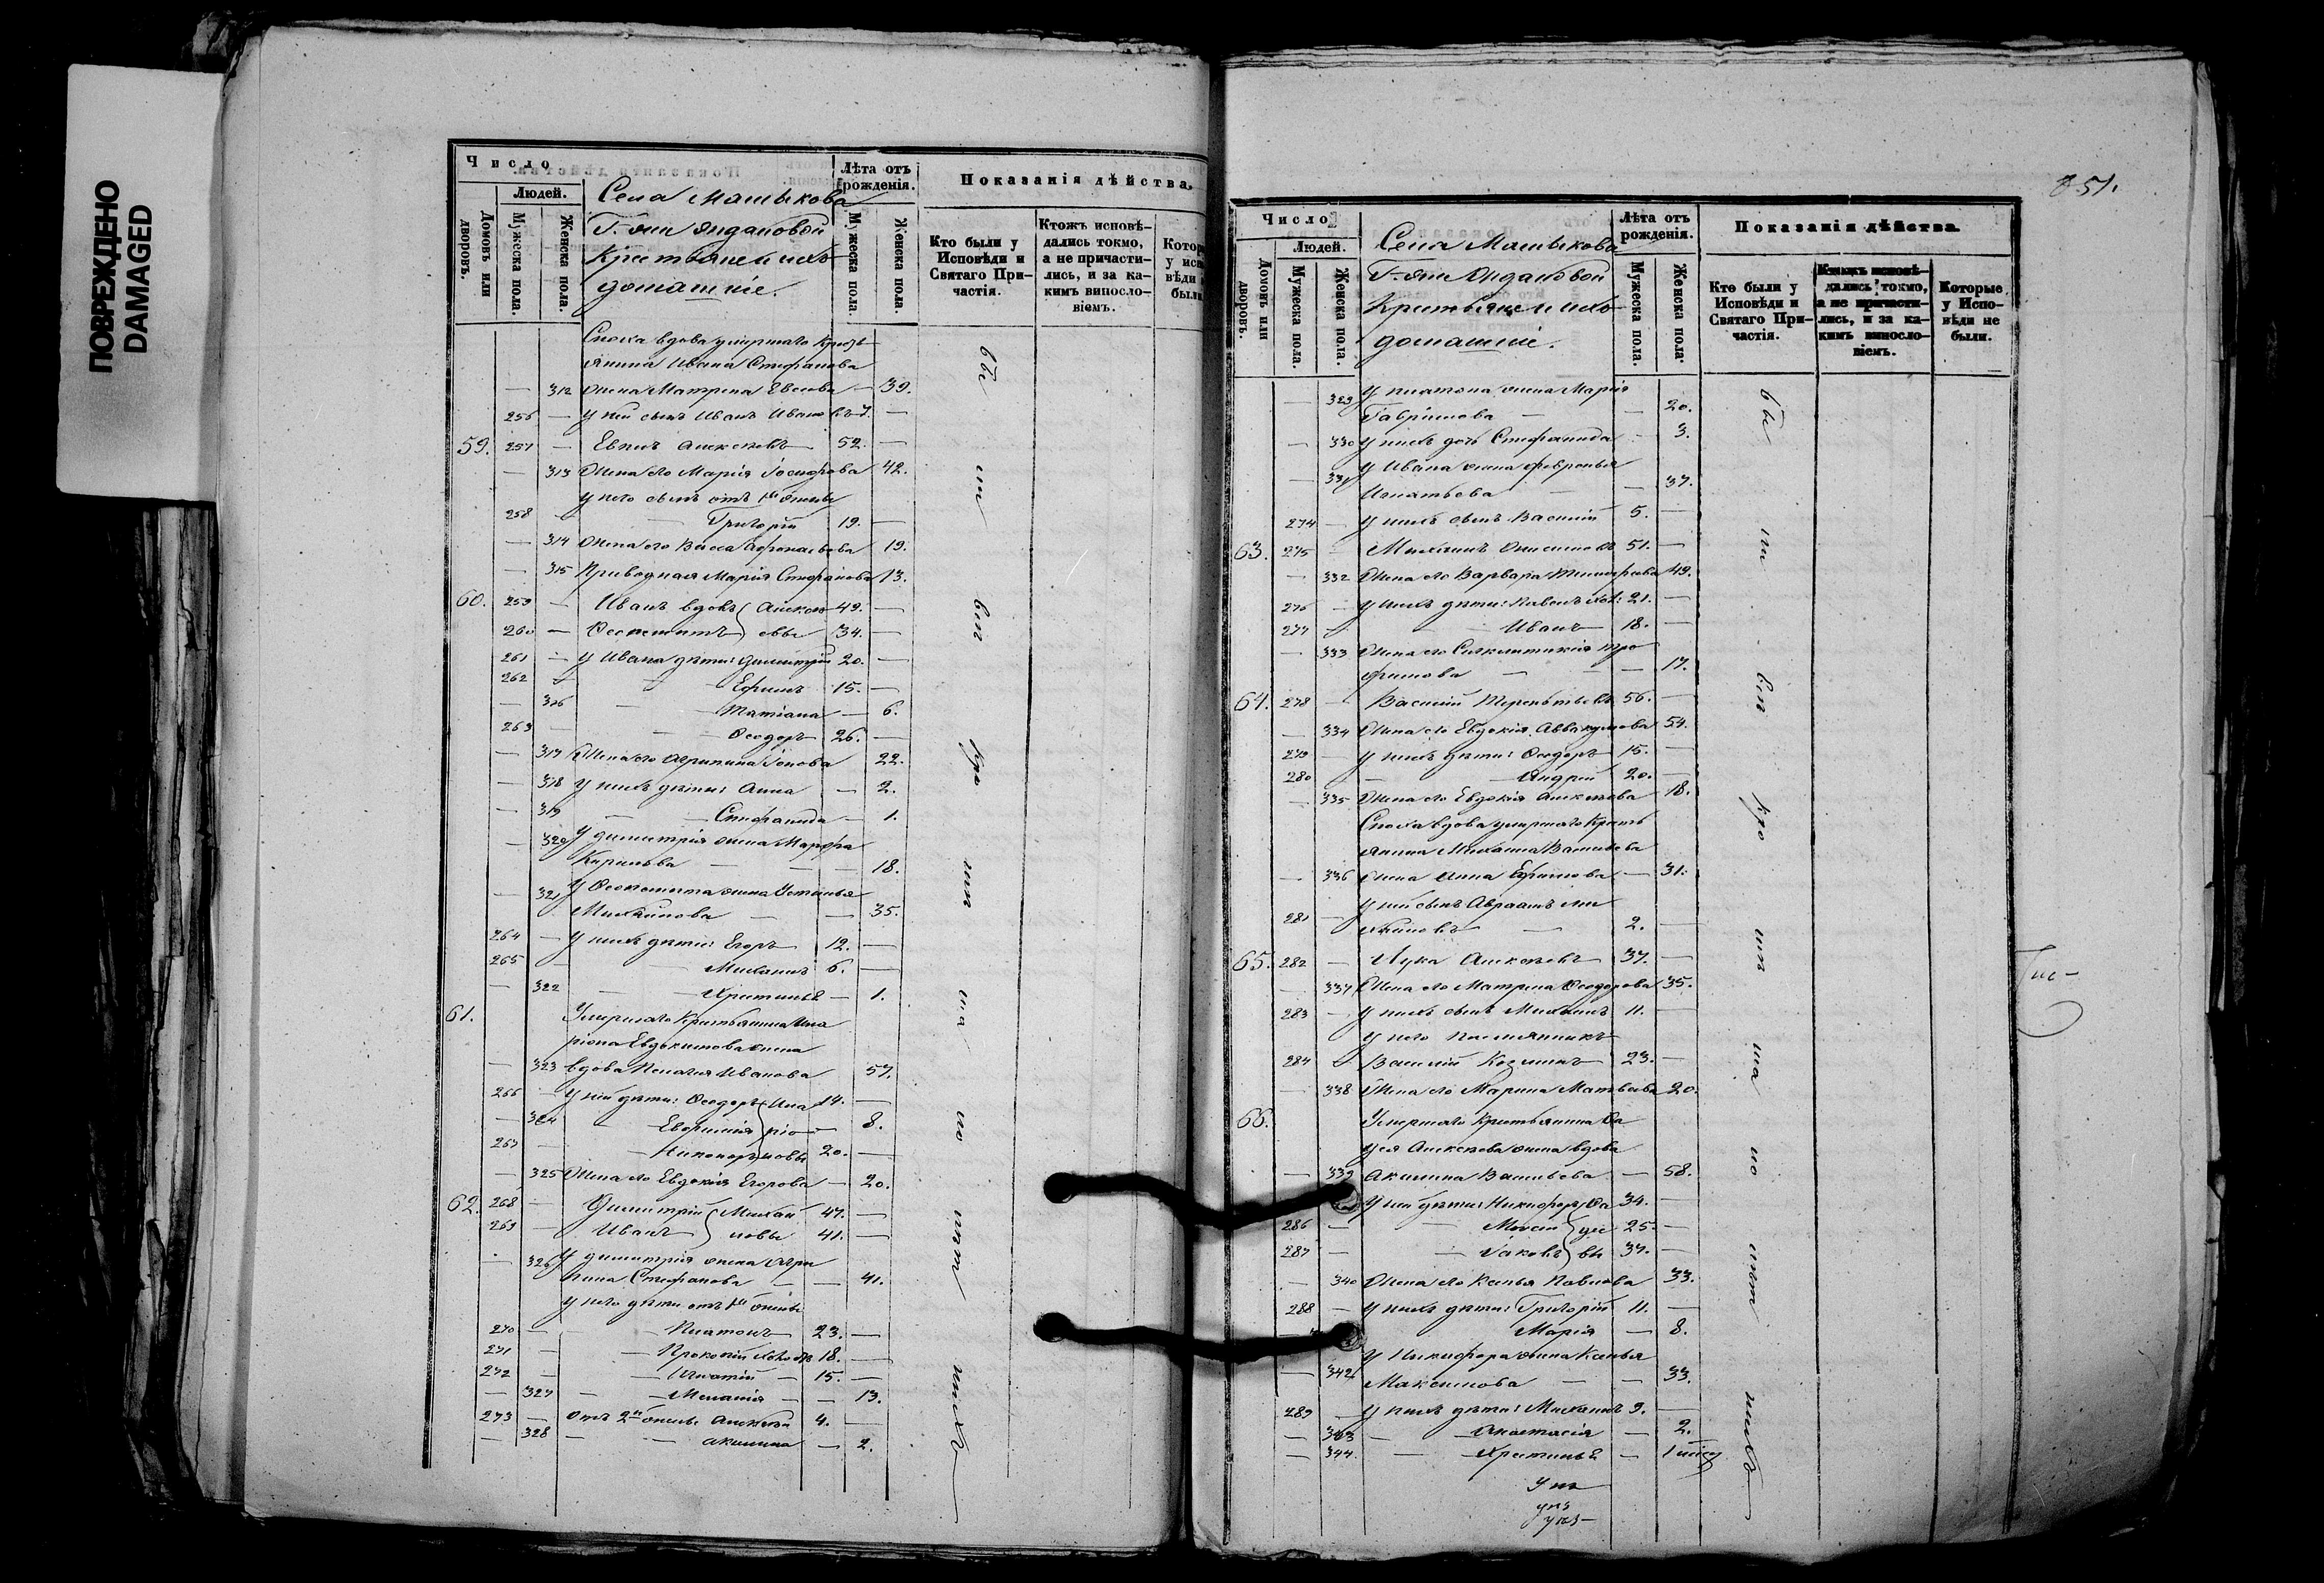 ПОВРЕЖДЕНО
DAMAGED
Число
Людей.
Домовъ или дворовъ.
Мужеска пола.
Женска пола.
Села Машыкова
Г-жи
Крестьяне и ихъ
домашніе.
Лѣта отъ рожденія.
Мужеска пола.
Женска пола.
Показанія дѣйства.
Кто были у Исповѣди и Святаго Причастія.
Ктожъ исповѣдались токмо, а не причастились, и за какимъ винословіемъ.
Сноха вдова умершаго крестьянина Ивана Стефанова
312 жена Матрена — 39.
256 — у ней сынъ Иванъ —
59. 257 — Алексѣевъ 52. —
— 313 Жена его Марія Іосифова 42.
у него сынъ отъ 1й жены
258 — Григорій 19. —
— 314 Жена его Васса 19.
— 315 Приводная Марія Стефанова 13.
60. 259 — Иванъ вдовъ 49. —
260 — Ѳеоктистъ 34. —
261 — у Ивана дѣти: Димитрій 20. —
262 — Ефимъ 15. —
— 316 — Татіана — 6.
263 — Ѳеодоръ 26. —
— 317 Жена его Агрипина 22.
— 318 у нихъ дѣти: Анна — 2.
— 319 — Стефанида — 1.
— 320 у Димитрія жена Марфа
Кирилова — 18.
— 321 у Ѳеоктиста жена Устинья
Михайлова — 35.
264 — у нихъ дѣти: Егоръ 12. —
265 — Михаилъ 6. —
— 322 — Христинья — 1.
61. Умершаго Крестьянина Илларіона Евдокимова жена
— 323 вдова Пелагія Иванова 57.
266 — у ней дѣти: Ѳеодоръ 14. —
— 324 — Евфимія — 8.
267 — Никаноръ 20. —
— 325 Жена его Евдокія Егорова — 20.
62. 268 — Димитрій Михай 47. —
269 — Иванъ ловы 41. —
— 326 у Димитрія жена Агрипина Стефанова — 41.
у него дѣти отъ 1й жены
270 — Платонъ 23. —
271 — Прокопій холостъ 18. —
272 — Игнатій — 15. —
— 327 — Меланія — 13.
273 — отъ 2й жены Алексѣй 4. —
— 328 — Акилина — 2.
851.
Число
Людей.
Домовъ или дворовъ.
Мужеска пола.
Женска пола.
Села Машыкова
Г-жи
Крестьяне и ихъ
домашніе.
Лѣта отъ рожденія.
Мужеска пола.
Женска пола.
Показанія дѣйства.
Кто были у Исповѣди и Святаго Причастія.
Ктожъ исповѣдались токмо, а не причастились, и за какимъ винословіемъ.
Которые у Исповѣди не были.
— 329 у Платона жена Марія
Гаврилова — 20.
— 330 у нихъ дочь Стефанида — 3.
— 331 у Ивана жена Февронья
Игнатьева — 37.
274 — у нихъ сынъ Василій 5. —
63. 275 — Михаилъ 51. —
— 332 Жена его Варвара Тимофѣева 49.
276 — у нихъ дѣти: Павелъ хол: 21. —
277 — Иванъ 18. —
— 333 Жена его Трофимова — 17.
64. 278 — Василій Терентьевъ 56. —
— 334 Жена его Евдокія Аввакумова 54.
279 — у нихъ дѣти: Ѳеодоръ 15. —
280 — Андрей 20. —
— 335 Жена его Евдокія Алексѣева 18.
Сноха вдова умершаго Крестьянина Михаила Васильева
— 336 жена Анна Ефимова — 31.
281 — у ней сынъ Авраамъ Михайловъ 2. —
65. 282 — Лука Алексѣевъ 37. —
— 337 Жена его Матрена Ѳеодорова 35.
283 — у нихъ сынъ Михаилъ 11. —
у него племянникъ
284 — Василій Козминъ 23. —
— 338 Жена его Марина Матвѣева 20.
66. Умершаго Крестьянина Ѳадея Алексѣева жена вдова
— 339 Акилина Васильева — 58.
у ней дѣти: Никифоръ Ѳа 34. —
286 — Моисей дее 25. —
287 — Іаковъ вы 37. —
— 340 Жена его Ксенья Павлова 33.
288 — у нихъ дѣти: Григорій 11. —
Марія — 8.
— 342 у Никифора жена Ксенья
Максимова — 33.
289 — у нихъ дѣти: Михаилъ 9. —
— 343 — Анастасія — 2.
— 344 — Христинья —